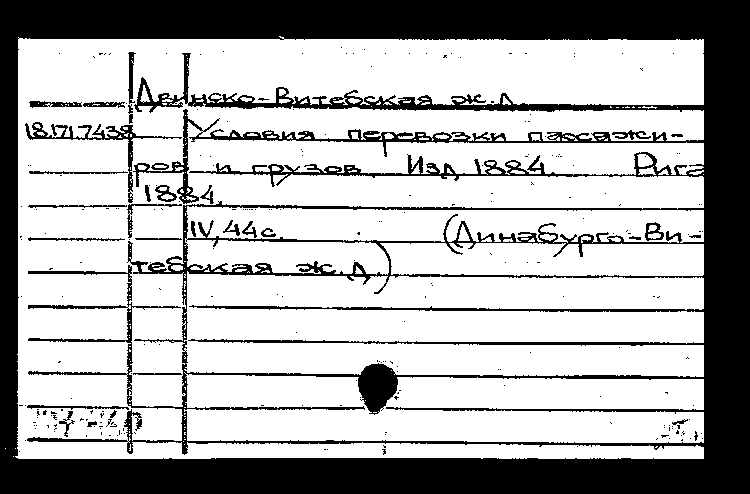 Двинско-Витебская ж.д.
18.171.7.438 Условия перевозки пассажи-
ров и грузов. Изд. 1884. Рига
1884.
IV, 44с. (Динабурго-Ви-
тебская ж.д.)